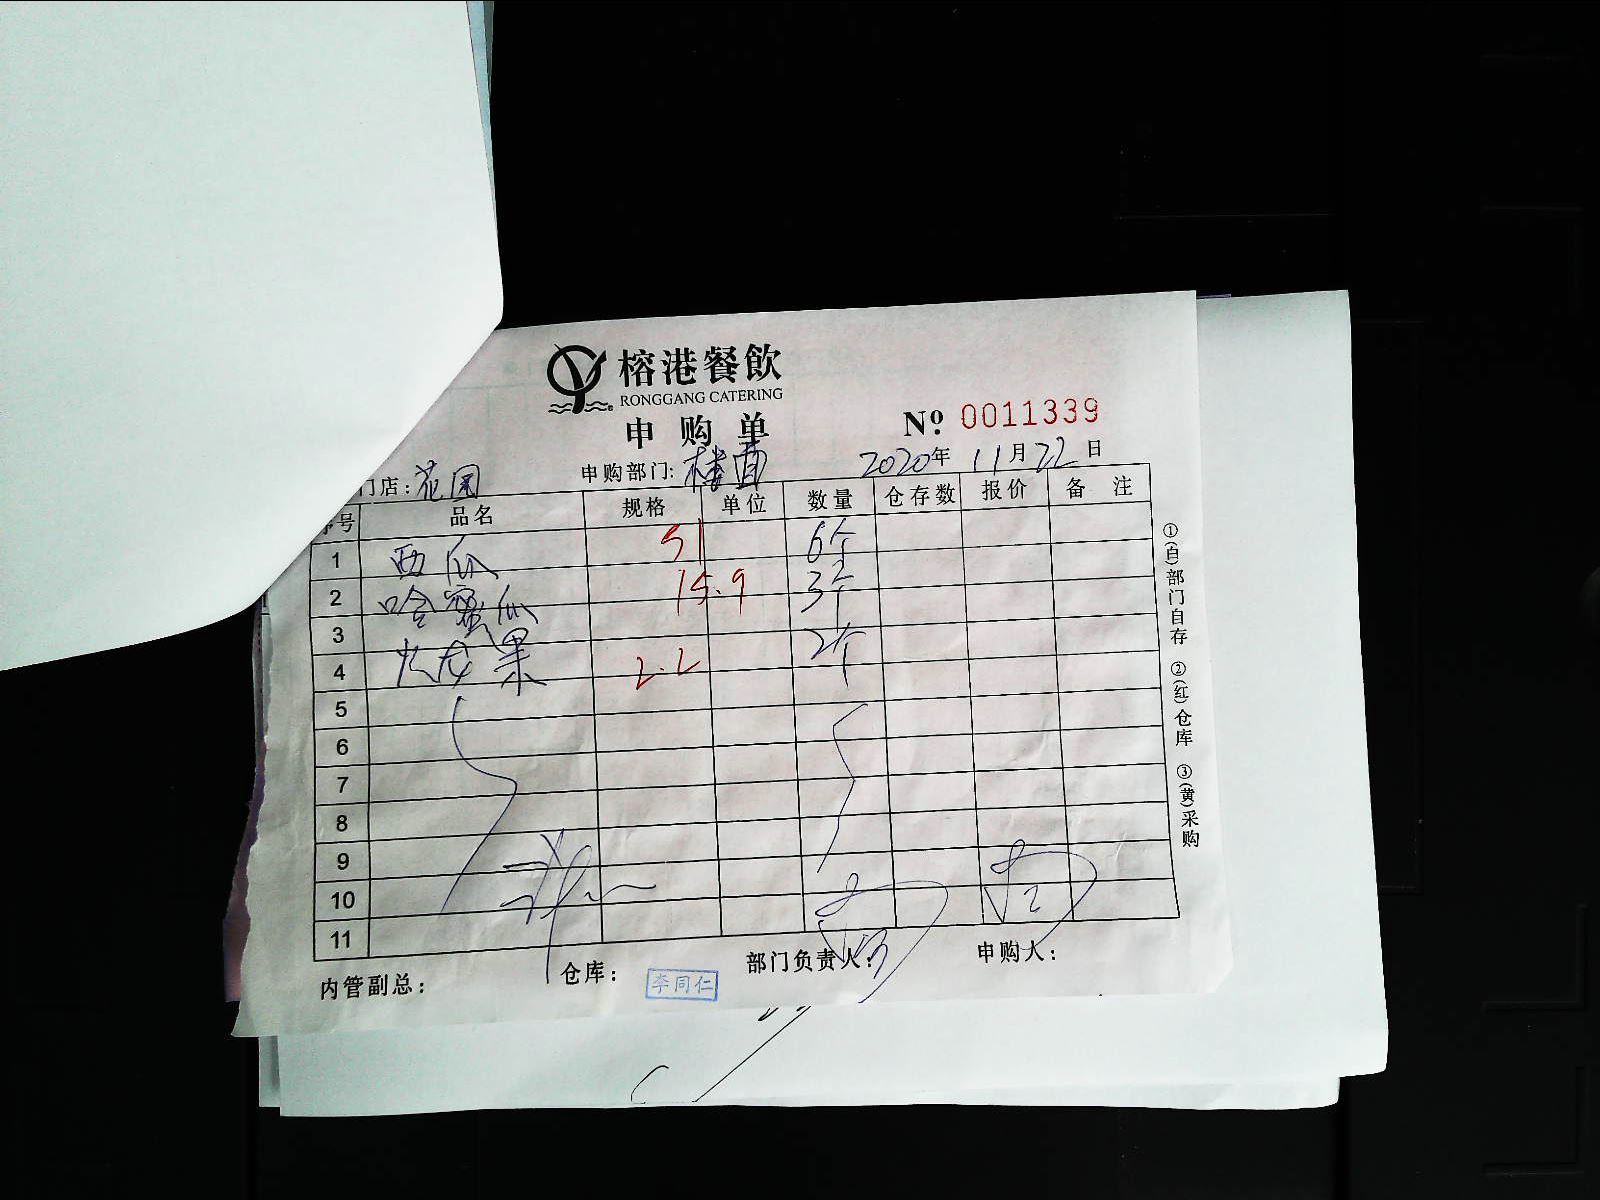 榕港餐飲
RONGGANG CATERING
申购单 Nº 0011339
门店:花园 申购部门:楼面 2020年11月22日
序号 品名 规格 单位 数量 仓存数 报价 备注
1 西瓜 51 6个
2 哈蜜瓜 15.9 3个
3
4 火龙果 2.2 2个
5
6
7
8
9
10
11
内管副总: 仓库: 李同仁 部门负责人: 申购人:
①(白)部门自存 ②(红)仓库 ③(黄)采购